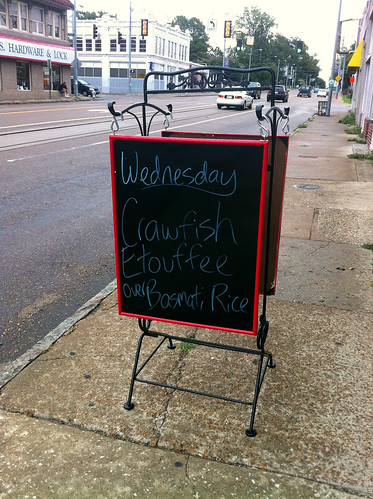 S. HARDWARE & LOCK
Wednesday
Crawfish
Etouffee
over Basmati Rice